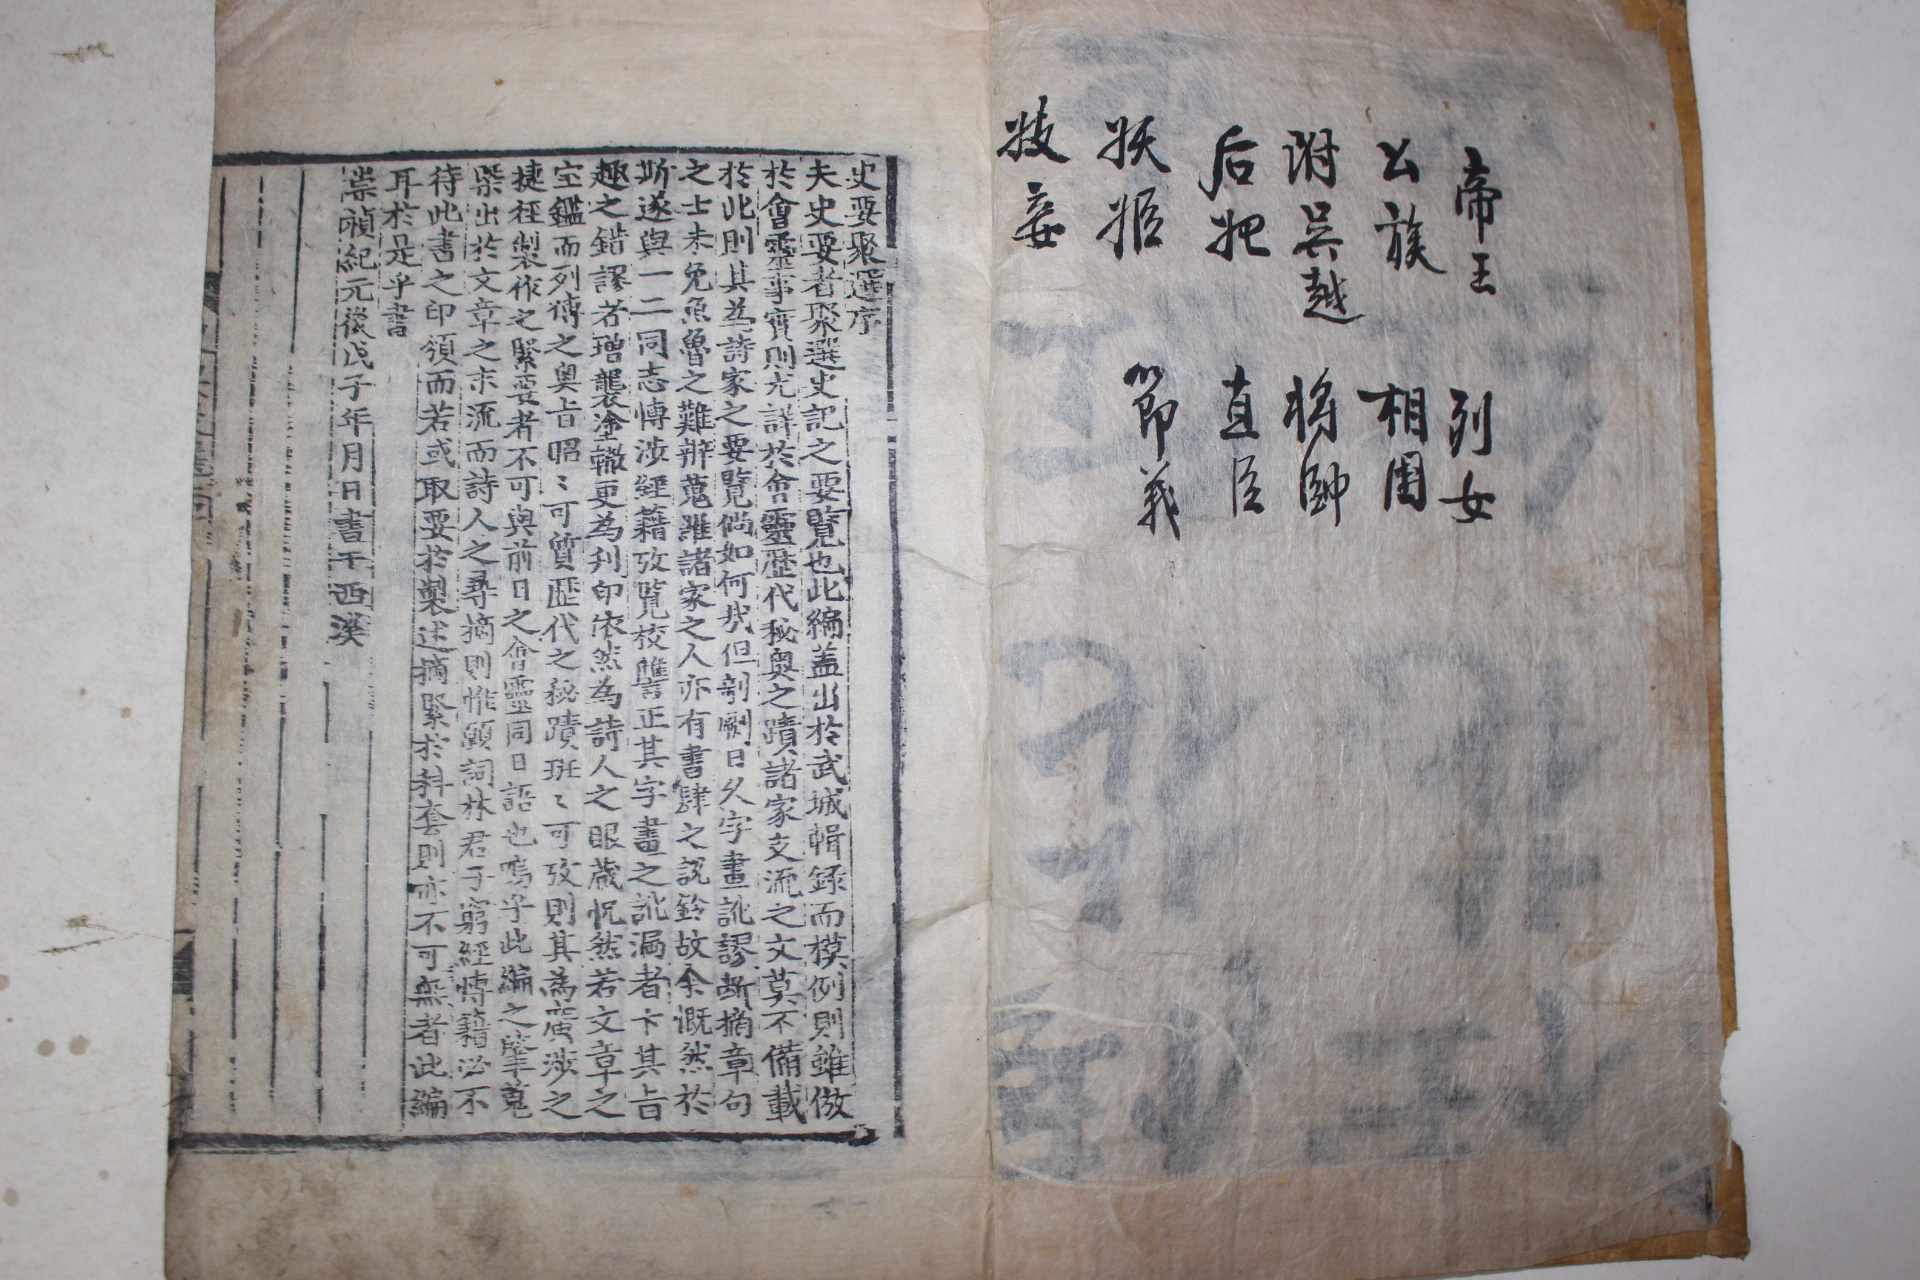 帝王
公族
附吳越
后妃
妖姬
妓妾
列女
相国
将帥
直臣
節義
史要聚選序
夫史要者聚選史記之要覽也此編盖出於武城輯録而模例則雖倣
於會靈事實則尤詳於會靈歷代秘奧之蹟諸家支流之文莫不備載
於此則其為詩家之要覽倘如何我但剞劂日久字畫訛謬斷摘章句
之士未免魚魯之難辨蒐雖諸家之人亦有書肆之說鈴故余慨然於
斯遂與一二同志博涉經籍攷覽校讐正其字畫之訛漏者卞其旨
趣之錯謬若增襲塗轍更為刋印依然為詩人之眼蔵怳然若文章之
宝鑑而列傳之奥旨昭〻可質歷代之秘蹟班〻可攷則其為廣涉之
捷徑製作之緊要者不可與前日之會靈同日語也嗚乎此編之肇蒐
槩出於文章之末流而詩人之尋摘則惟願詞林君子窮經博籍必不
待此書之印須而若或取要於製述摘緊於科套則亦不可無者此編
耳於是乎書
崇禎紀元後戊子年月日書于西溪